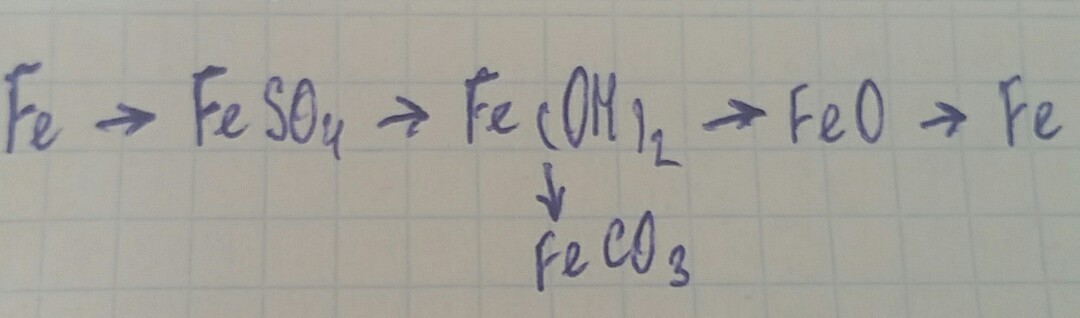 Fe → FeSO₄ → Fe(OH)₂ → FeO → Fe
↓
FeCO₃